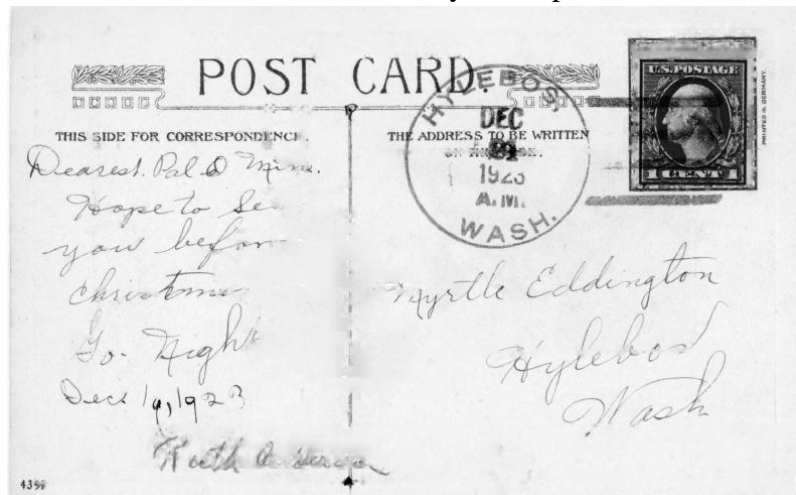 POST CARD.
THIS SIDE FOR CORRESPONDENCE.
THE ADDRESS TO BE WRITTEN
HYLEBOS,
DEC
1923
A.M.
WASH.
U.S. POSTAGE
1 CENT 1
PRINTED IN GERMANY.
Dearest Pal O Mine.
Hope to See
you before
Christmas
Go. Night
Dec 19, 1923
Ruth
Myrtle Eddington
Hylebos
Wash